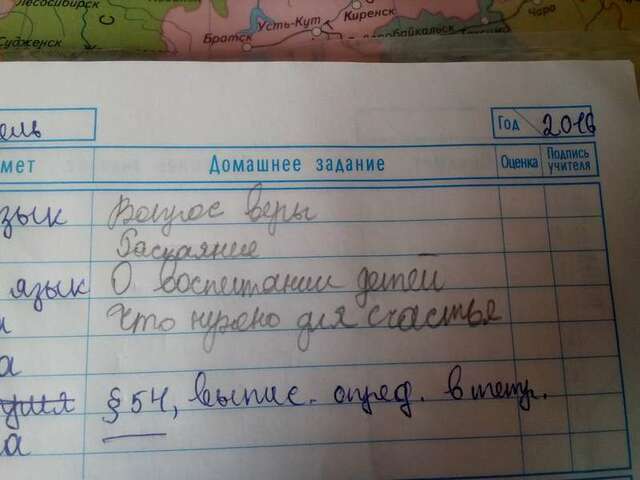 Лесосибирск
Судженск
Братск
Усть-Кут
Киренск
Чара
ель
Год 2016
мет Домашнее задание Оценка Подпись учителя
зык Вопрос веры
Раскаяние
язык О воспитании детей
Что нужно для счастья
а
§ 54, выпис. опред. в тетр.
а